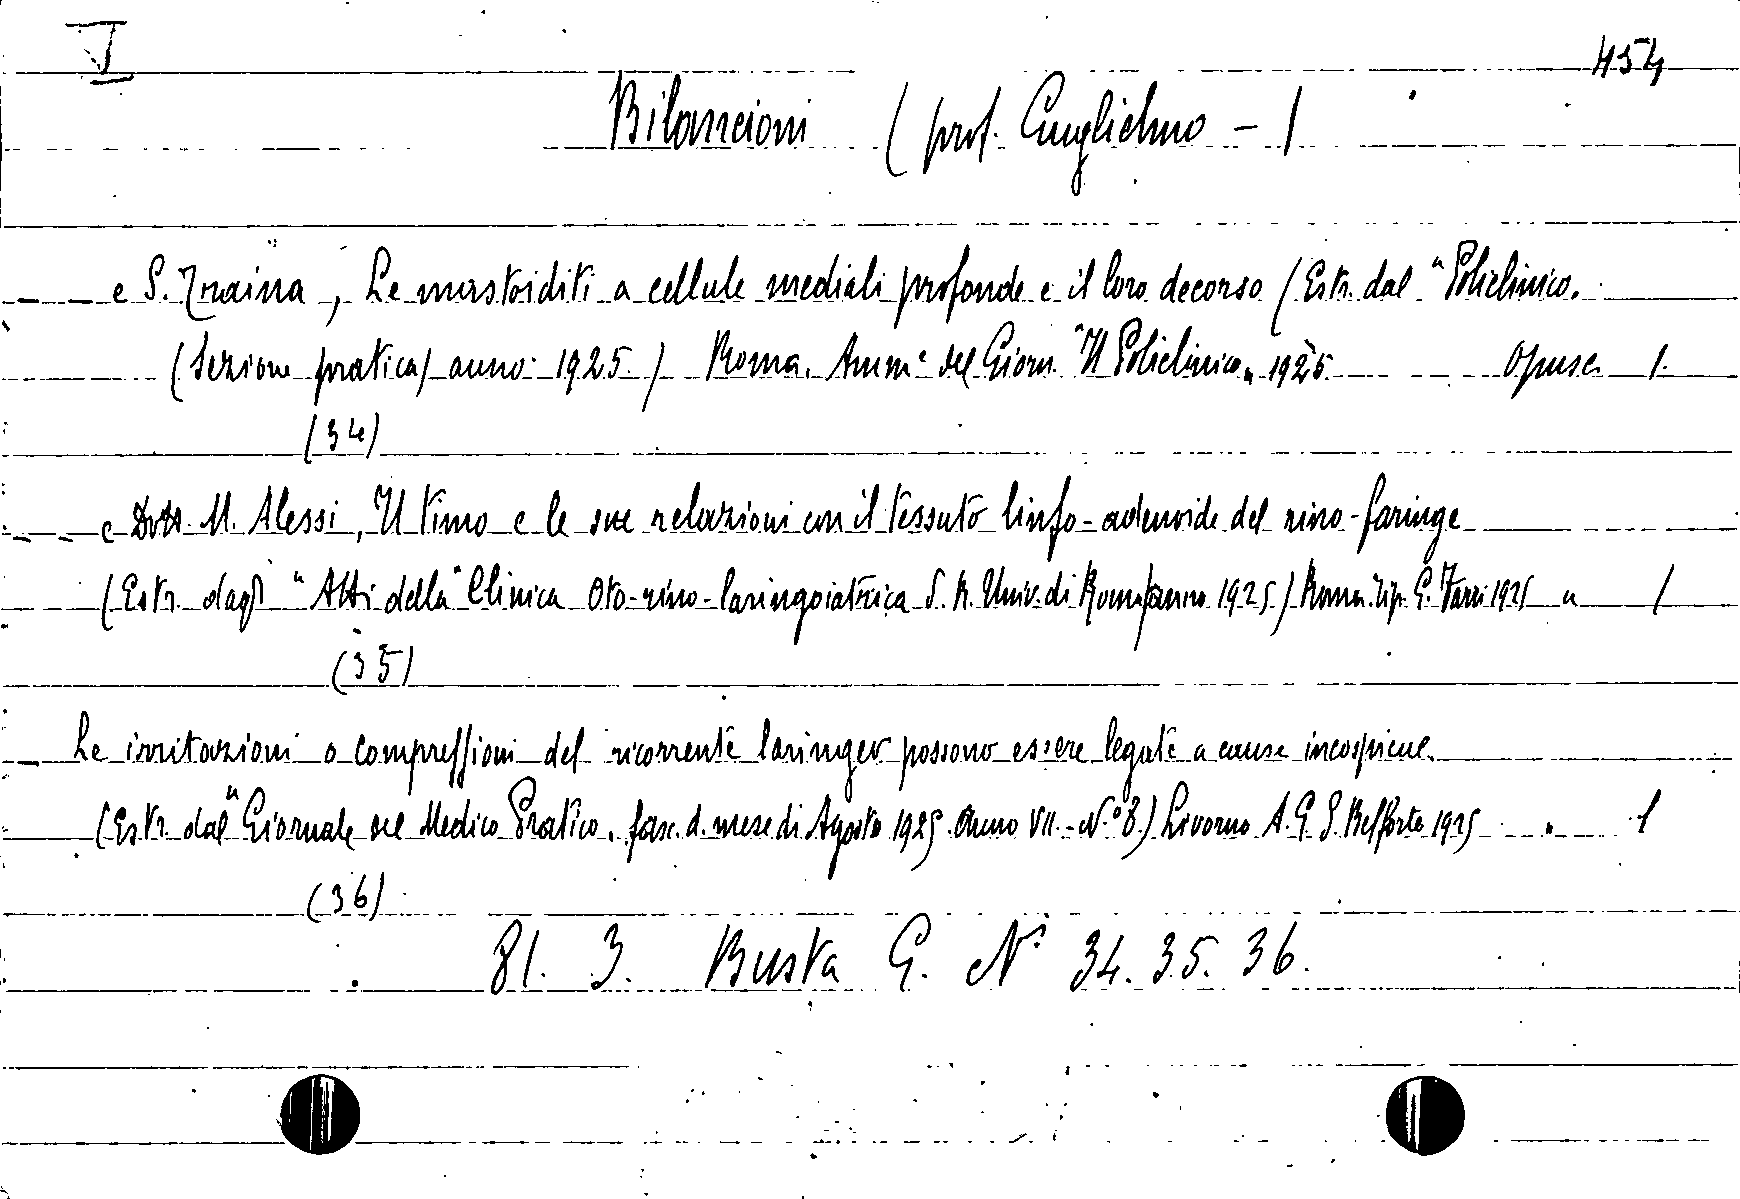 I 454
Bilancioni (prof. Guglielmo - )
e S. Traina, Le mastoiditi a cellule mediali profonde e il loro decorso (Estr. dal "Policlinico.
(Sezione pratica) anno 1925.) Roma. Amm.e del Giorn. "Il Policlinico" 1925. Opusc. 1.
(34)
e Dott. M. Alessi, Il timo e le sue relazioni con il tessuto linfo-adenoide del rino-faringe
(Estr. dagli "Atti della" Clinica Oto-rino-laringoiatrica d. R. Univ. di Roma anno 1925.) Roma. Tip. G. 1925 " 1
(35)
Le irritazioni o compressioni del ricorrente laringeo possono essere legate a cause incospicue.
(Estr. dal "Giornale del Medico Pratico. fasc. d. mese di Agosto 1925. Anno VII. - N.o 8.) Livorno A. G. S. Belforte 1925 " 1
(36)
81. 3. Busta G. Ni 34. 35. 36.